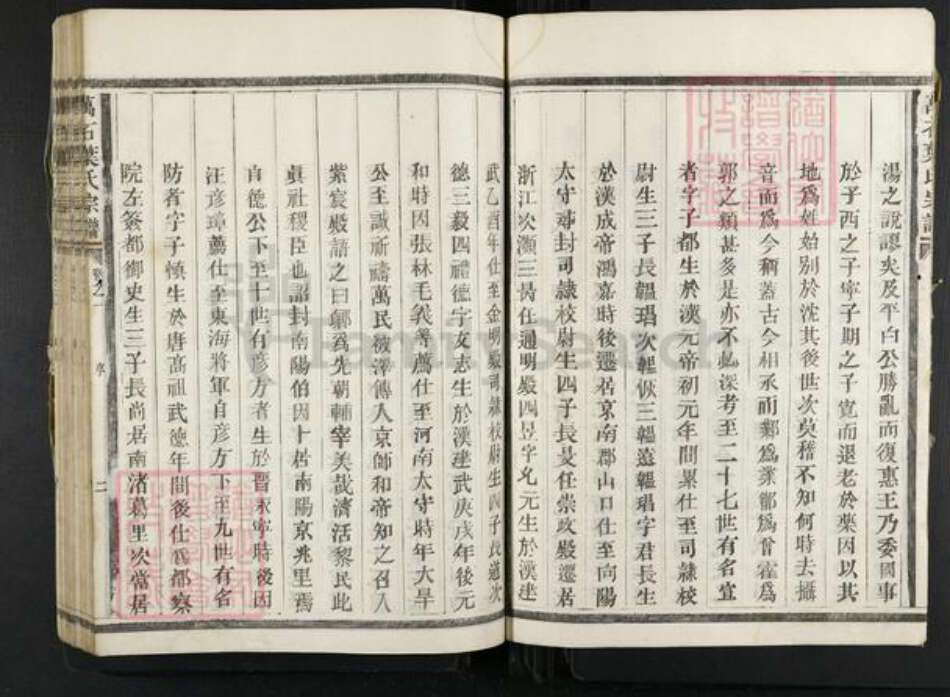 湯之說謬矣及平白公勝亂而復惠王乃委國事
於子西之子寧子期之子寬而退老於葉因以其
地為姓始別於沈其後世次莫稽不知何時去攝
音而為今稱蓋古今相承而鄴為葉鄫為曾霍為
郭之類甚多是亦不
深考至二十七世有名宣
者字子都生於漢元帝初元年間累仕至司隸校
尉生三子長韞琩次韞恢三韞遠韞琩字君長生
於漢成帝鴻嘉時後遷居京南郡山口仕至向陽
太守尋封司隸校尉生四子長旻任崇政殿遷居
浙江次灝三
任通明殿四昱字允元生於漢建
武乙酉年仕至金明殿司隸校尉生四子長道次
德三毅四禮德字友志生於漢建武庚戌年後元
和時因張林毛義善薦仕至河南太守時年大旱
公至誠祈禱萬民被澤傳入京師和帝知之召入
紫宸殿誥之曰鄉為先朝輔宰美哉濟活黎民此
眞社稷臣也詔封南陽伯因卜居南陽京兆里焉
自德公下至十世有彦方者生於晉永寧時後因
汪彦璋薦仕至東海將軍自彦方下至九世有名
防者字子慎生於唐高祖武德年間後仕爲都察
院左僉都御史生三子長尚居南渚葛里次當居
萬石葉氏宗譜
卷之一
序
二
萬石葉氏宗譜
FamilySearch